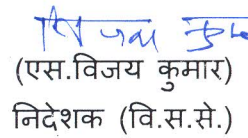 विजय कुमार
(एस.विजय कुमार)
निदेशक (वि.स.से.)